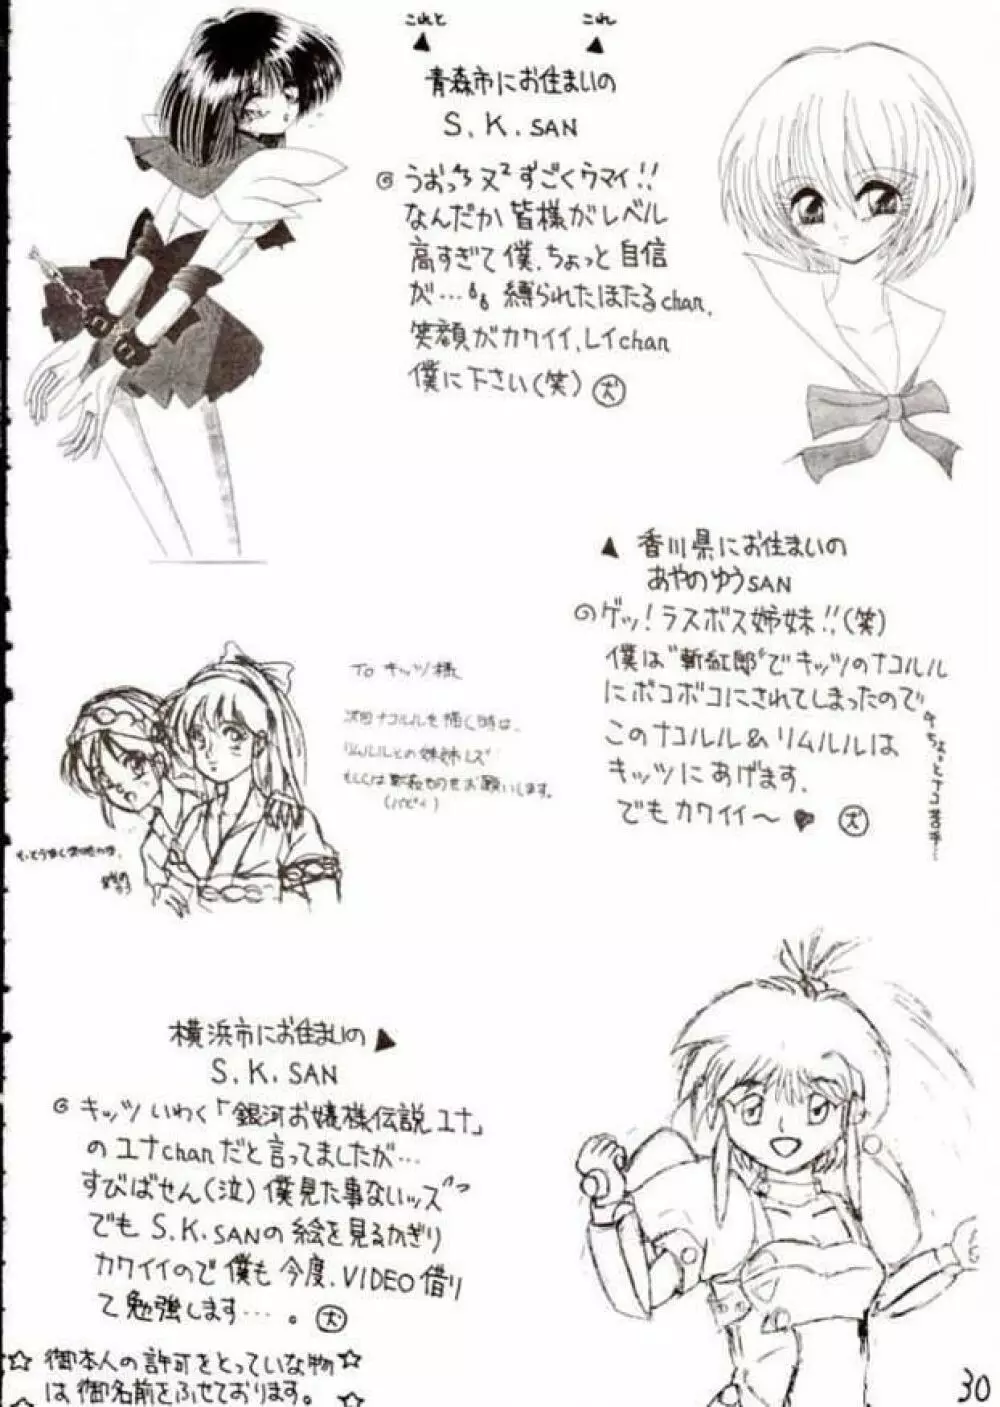 これと
これ
青森市にお住まいの
S.K.SAN
うおっ 又すごくウマイ!!
なんだか皆様がレベル
高すぎて僕、ちょっと自信
が… 縛られたほたるchan,
笑顔がカワイイ、レイchan
僕に下さい(笑) 犬
香川県にお住まいの
あやのゆうSAN
ゲッ!ラスボス姉妹!!(笑)
僕は"斬紅郎"でキッツのナコルル
にボコボコにされてしまったので
このナコルル&リムルルは
キッツにあげます.
でもカワイイ〜♥ 犬
Toキッツ様
次回ナコルルを描く時は、
リムルルとの姉妹
お願いします。
横浜市にお住まいの
S.K.SAN
キッツいわく「銀河お嬢様伝説ユナ」
のユナchanだと言ってましたが…
すびばせん(泣)僕見た事ないッズ
でもS.K.SANの絵を見るかぎり
カワイイので僕も今度、VIDEO借り
て勉強します…。犬
☆御本人の許可をとっていな物☆
☆は御名前をふせております。☆
30